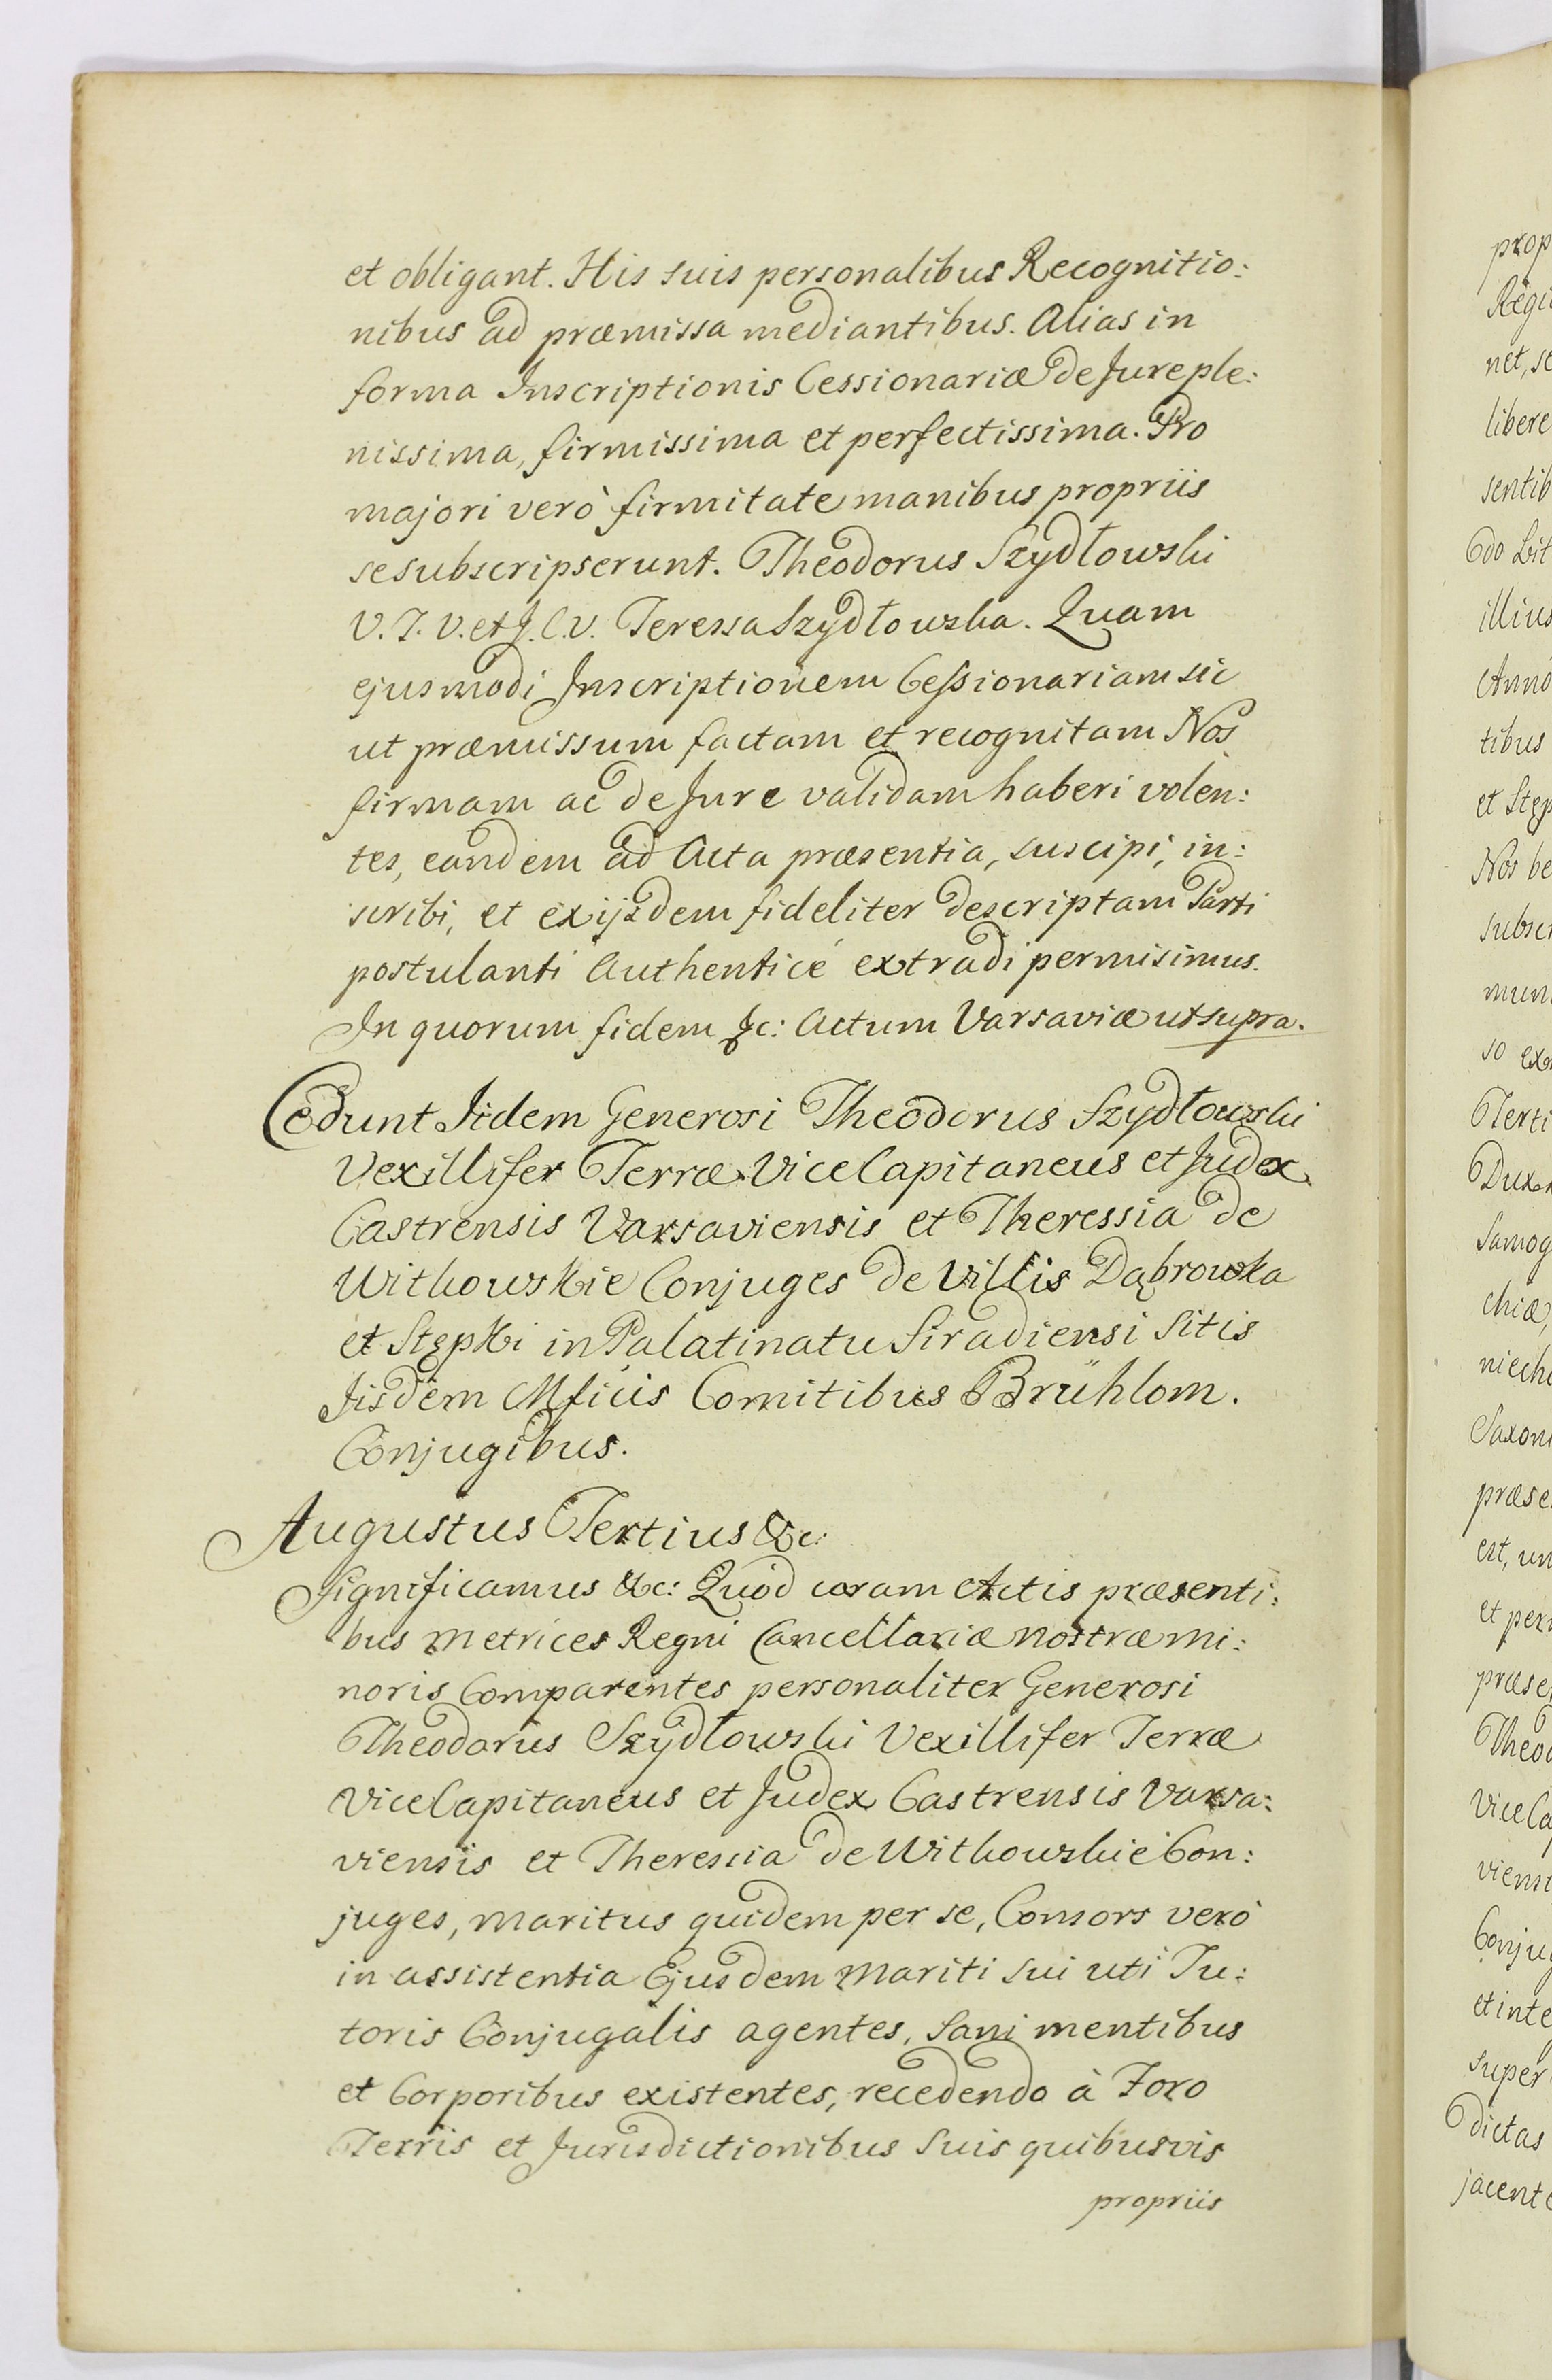 et obligant. His suis personalibus Recognitio:
nibus ad præmissa mediantibus. Alias in
forma Inscriptionis Cessionariæ de Jure ple:
nissima, firmissima et perfectissima. Pro
majori verò firmitate manibus propriis
se subscripserunt. Theodorus Szydłowski
V. T. V. et J. C. V. Teressa Szydłowska. Quam
ejusmodi Inscriptionem Cessionariam sic
ut præmissum factam et recognitam Nos
firmam ac de Jure validam haberi volen:
tes, eandem ad Acta præsentia, suscipi, in:
scribi, et exijsdem fideliter descriptam Parti
postulanti Authenticé extradi permisimus.
In quorum fidem &c: Actum Varsaviæ ut supra.
Cedunt Iidem Generosi Theodorus Szydłowski
Vexillifer Terræ ViceCapitaneus et Judex
Castrensis Varsaviensis et Theressia de
Witkowskie Conjuges de Villis Dąbrowka
et Stępki in Palatinatu Siradiensi Sitis
Iisdem Mficis Comitibus Brühlom.
Conjugibus.
Augustus Tertius &c:
Significamus &c: Quod coram Actis præsenti:
bus Metrices Regni Cancellariæ Nostræ Mi:
noris Comparentes personaliter Generosi
Theodorus Szydłowski Vexillifer Terræ
ViceCapitaneus et Judex Castrensis Varsa:
viensis et Theressia de Witkowskie Con:
juges, Maritus quidem per se, Consors verò
in assistentia Ejusdem Mariti sui uti Tu:
toris Conjugalis agentes, Sani mentibus
et Corporibus existentes, recedendo à Foro
Terris et Jurisdictionibus Suis quibusvis
propriis
prop
Regi
net, se
libere
sentib
do Lit
illius
Anno
tibus
et Stęp
Nos be
subscr
mun
so ex
Terti
Dux
Samog
chiæ,
niech
Saxon
præse
est, un
et per
præse
Theod
ViceCa
viens
Conju
et inte
super
dictas
jacent